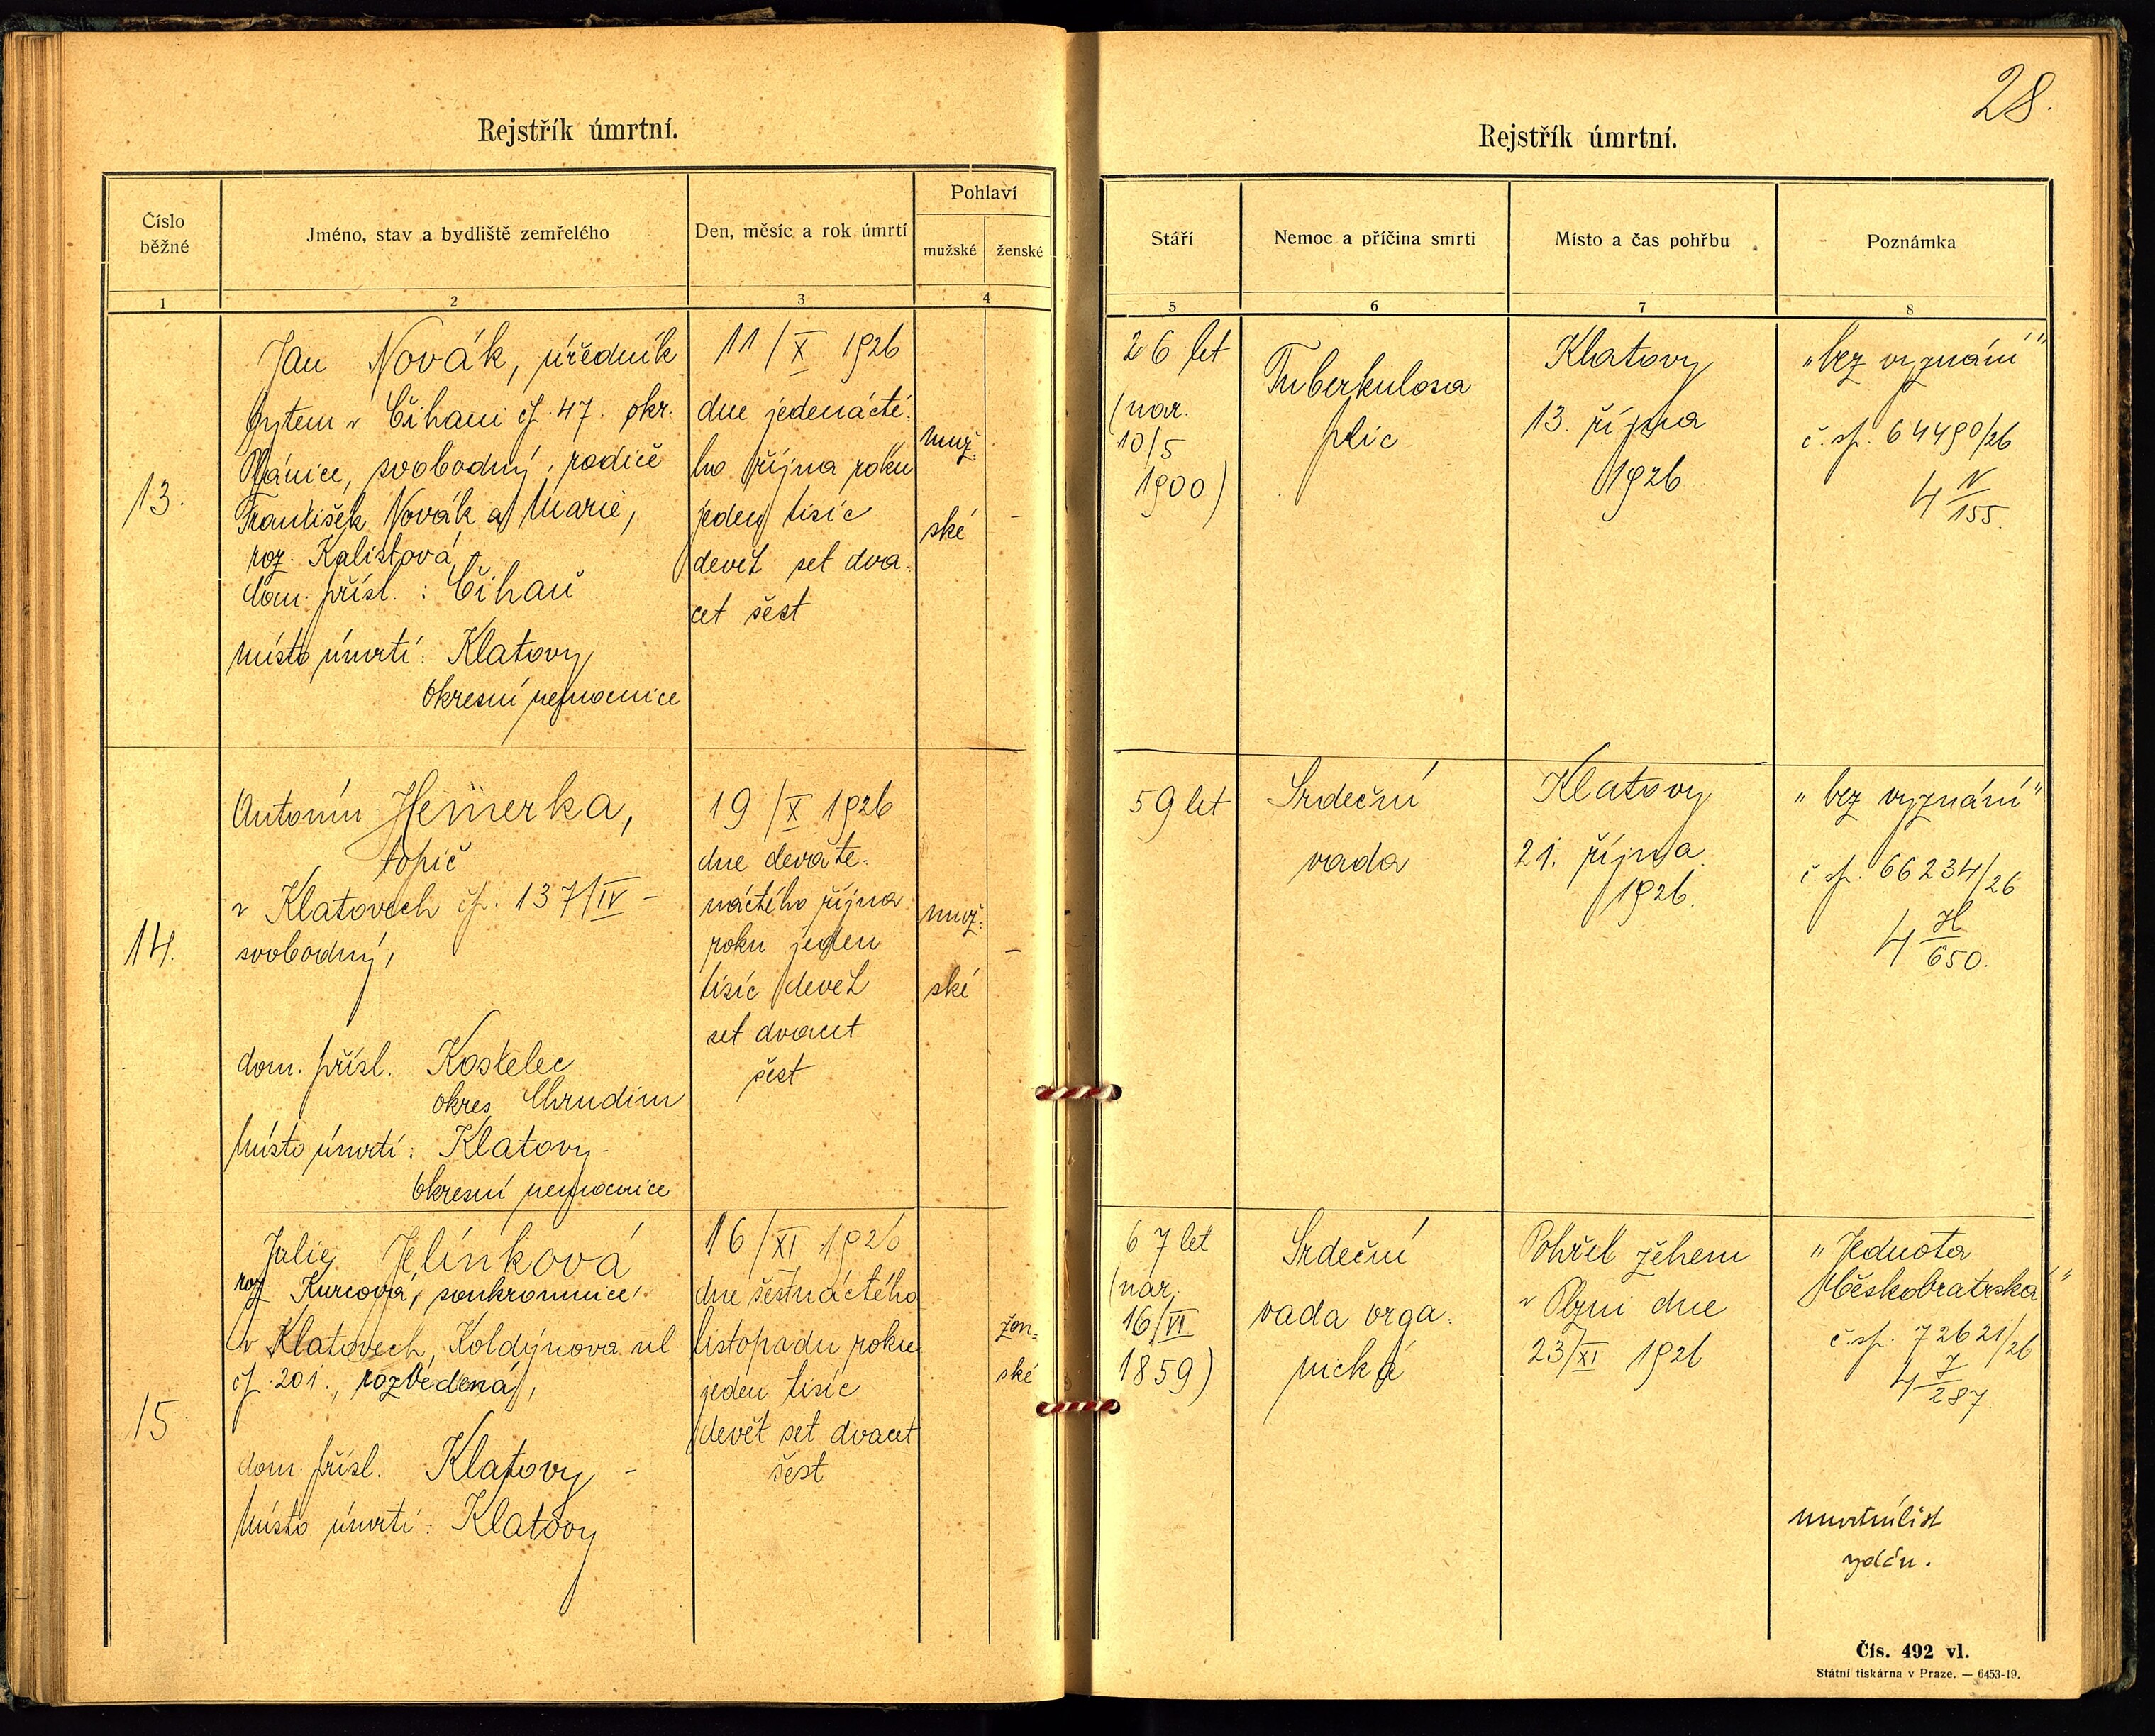 28.
Rejstřík úmrtní.
Číslo
běžné
Jméno, stav a bydliště zemřelého
Den, měsíc a rok úmrtí
Pohlaví
mužské
ženské
1
2
3
4
13.
Jan Novák, úředník
bytem v Čihani čp. 47. okr.
Plánice, svobodný, rodiče
František Novák a Marie,
roz. Kalistová,
dom. přísl. : Čihaň
Místo úmrtí : Klatovy
okresní nemocnice
11/X 1926
dne jedenácté-
ho října roku
jeden tisíc
devět set dva-
cet šest
muž-
ské
–
14.
Antonín Hemerka,
topič
v Klatovech čp. 137/IV –
svobodný,
dom. přísl. Kostelec
okres Chrudim
Místo úmrtí : Klatovy –
Okresní nemocnice
19/X 1926
dne devate-
náctého října
roku jeden
tisíc devět
set dvacet
šest
muž-
ské
–
15
Julie Jelínková
roz Kurcová, soukromnice,
v Klatovech, Koldýnova ul
čp. 201., rozvedená,
dom. přísl. Klatovy –
Místo úmrtí : Klatovy
16/XI 1926
dne šestnáctého
listopadu roku
jeden tisíc
devět set dvacet
šest
žen-
ské
Rejstřík úmrtní.
Stáří
Nemoc a příčina smrti
Místo a čas pohřbu
Poznámka
5
6
7
8
26 let
(nar.
10/5
1900)
Tuberkulosa
plic
Klatovy
13. října
1926
„bez vyznání"
č. sp. 64490/26
4 N/155.
59 let
Srdeční
vada
Klatovy
21. října
1926.
„bez vyznání"
č. sp. 66234/26
4 H/650.
67 let
(nar.
16/VI
1859)
Srdeční
vada orga-
nická
Pohřeb žehem
v Plzni dne
23/XI 1926
„Jednota
Českobratrská"
č. sp. 72621/26
4 J/287.
úmrtní list
vydán.
Čís. 492 vl.
Státní tiskárna v Praze. — 6453-19.